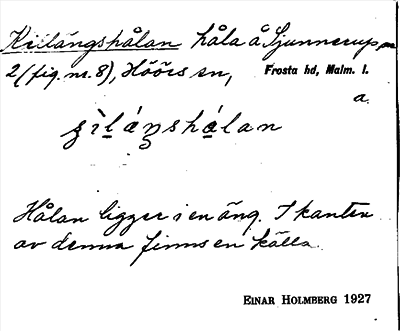 Kilängshålan håla å Sjunnerup
2 (fig. nr. 8), Höörs sn, Frosta hd, Malm. l.
a.
Hålan ligger i en äng. I kanten
av denna finns en källa.
EINAR HOLMBERG 1927